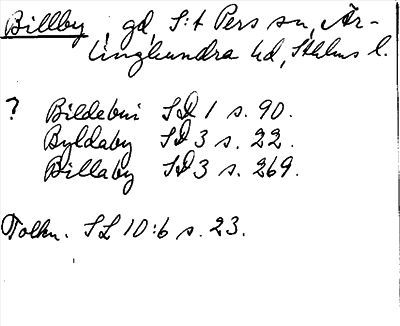 Billby, gd, S:t Pers sn, Är-
linghundra hd, Sthlms l.
? Bildebui SD 1 s. 90.
Byldaby SD 3 s. 22.
Billaby SD 3 s. 269.
Tolkn. SL 10:6 s. 23.